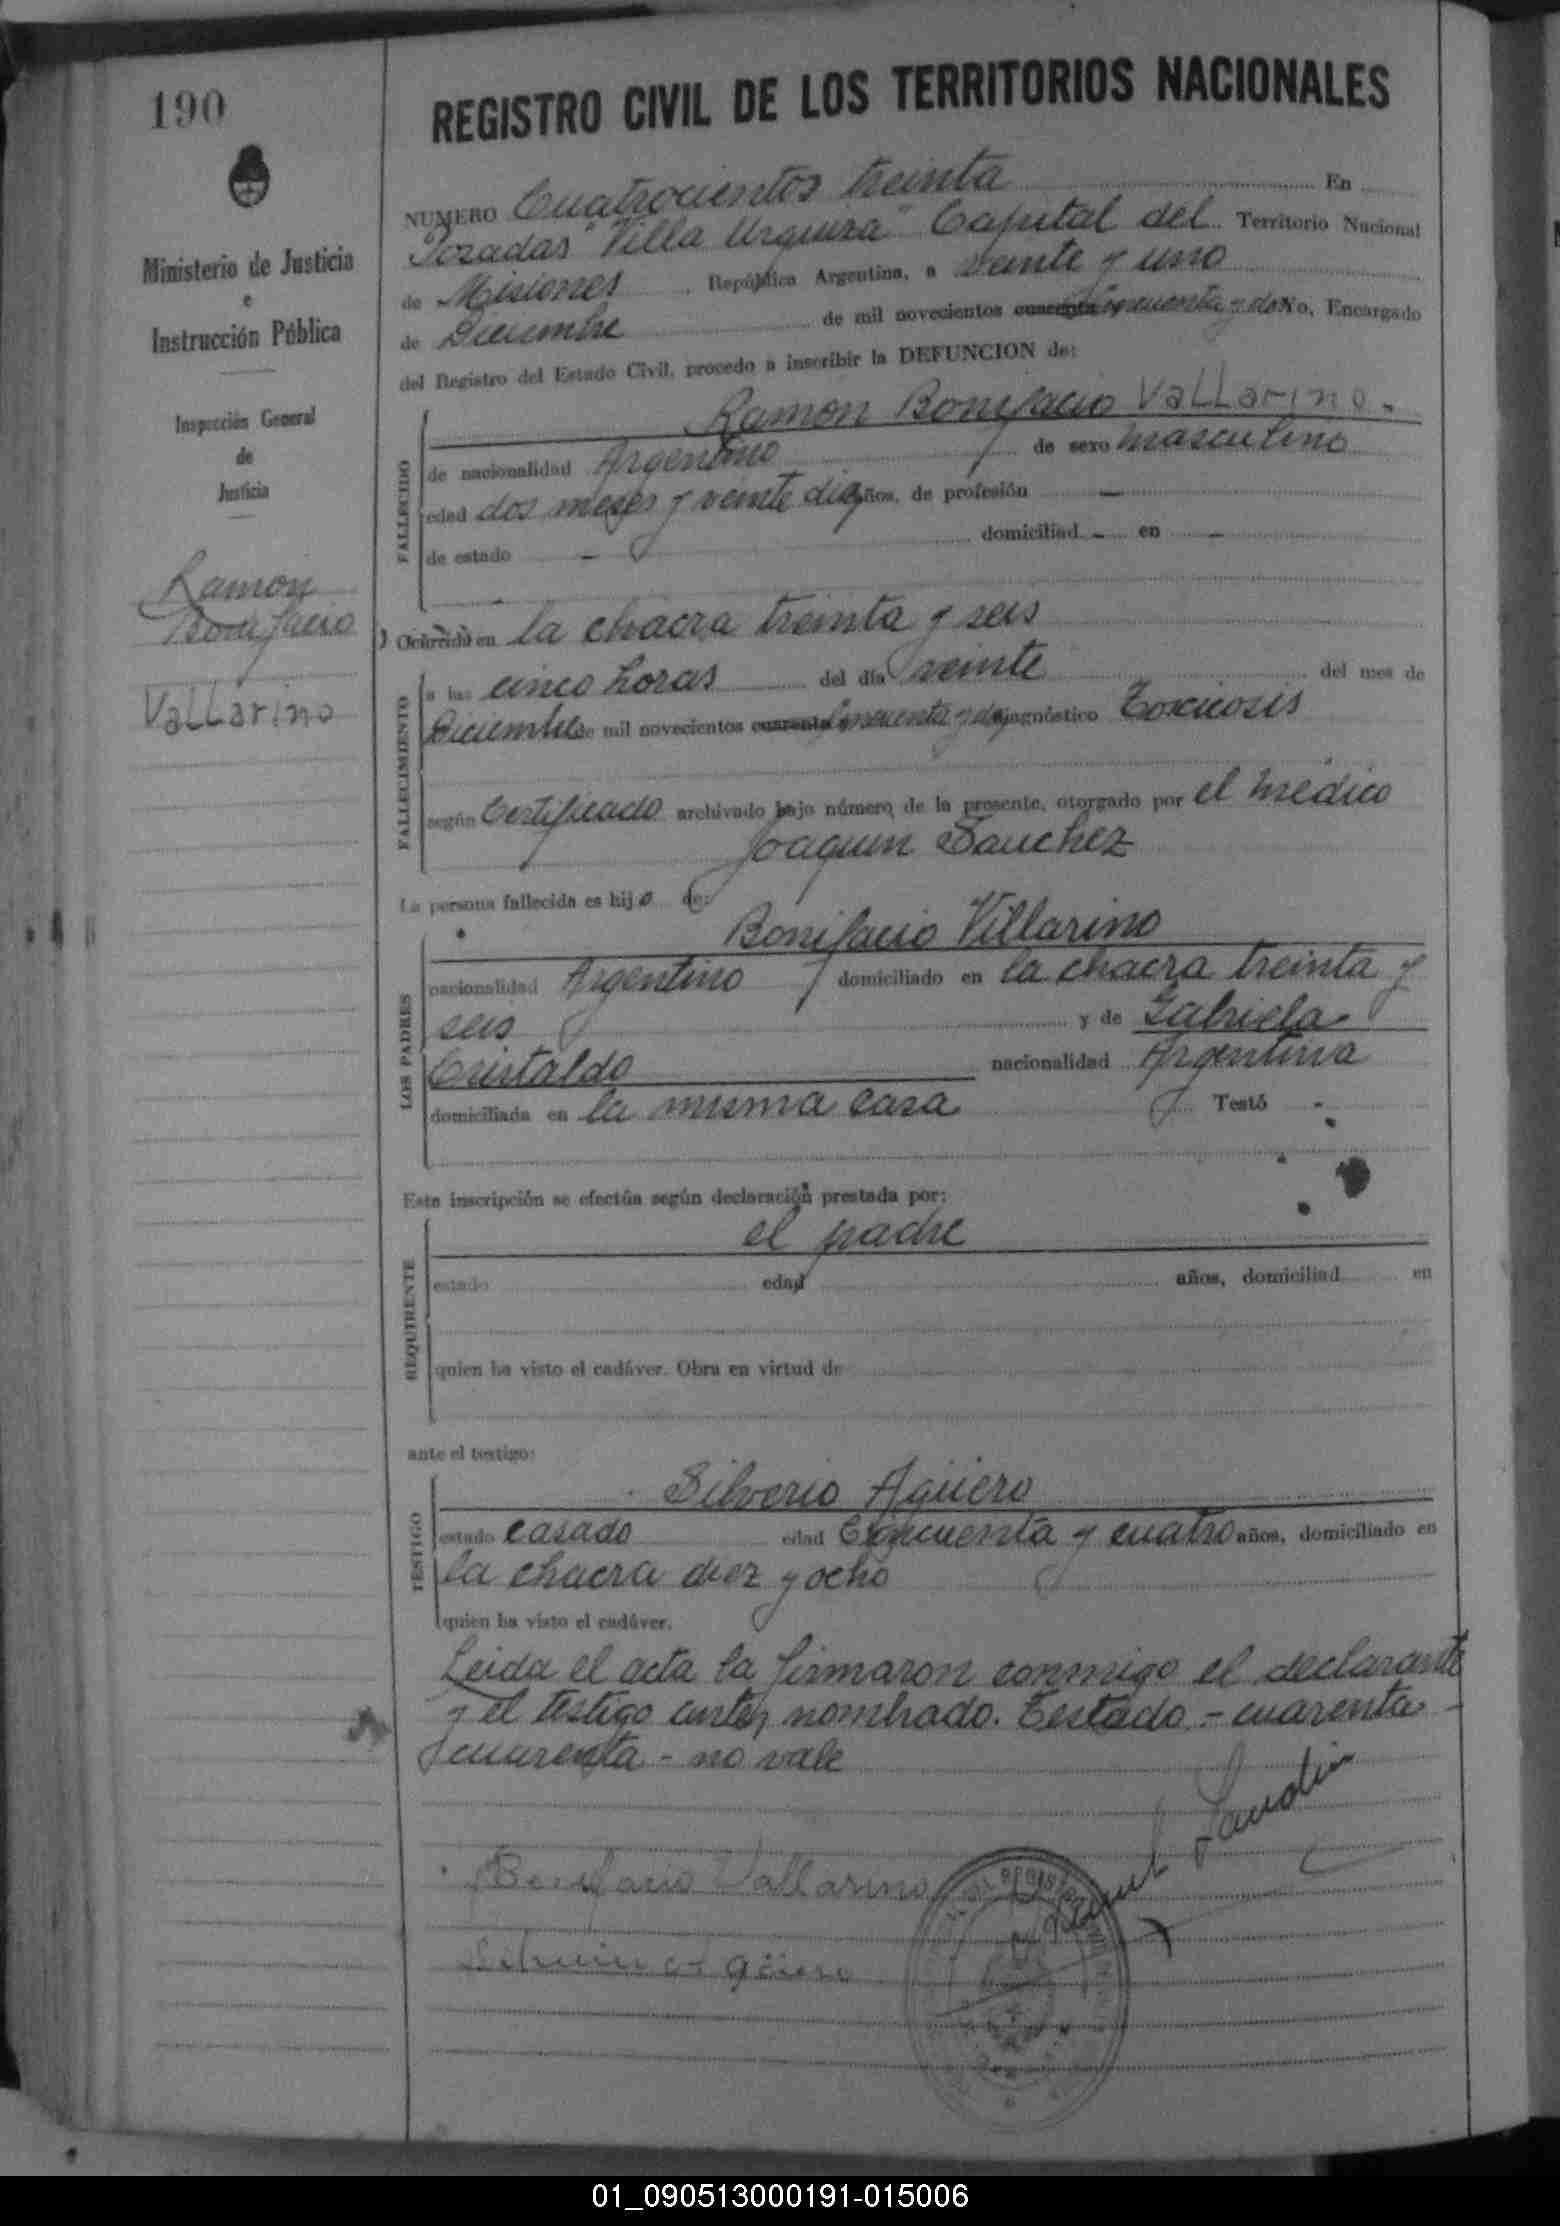 190
REGISTRO CIVIL DE LOS TERRITORIOS NACIONALES
Ministerio de Justicia
e
Instrucción Pública
Inspección General
de
Justicia
Ramon
Bonifacio
Vallarino
NUMERO Cuatrocientos treinta En
Posadas "Villa Urquiza" Capital del Territorio Nacional
de Misiones, República Argentina, a veinte y uno
de Diciembre de mil novecientos cuarenta cincuenta y dos Yo, Encargado
del Registro del Estado Civil, procedo a inscribir la DEFUNCION de:
FALLECIDO
Ramon Bonifacio Vallarino.-
de nacionalidad Argentino de sexo masculino
edad dos meses y veinte dias años, de profesión -
de estado - domiciliad - en -
Ocurrido en la chacra treinta y seis
FALLECIMIENTO
a las cinco horas del día veinte del mes de
Diciembre de mil novecientos cuarenta cincuenta y dos diagnóstico Toxicosis
según Certificado archivado bajo número de la presente, otorgado por el médico
Joaquin Sanchez
La persona fallecida es hijo de:
LOS PADRES
Bonifacio Villarino
nacionalidad Argentino domiciliado en la chacra treinta y
seis y de Gabriela
Cristaldo nacionalidad Argentina
domiciliada en la misma casa Testó -
Esta inscripción se efectúa según declaración prestada por:
REQUIRENTE
el padre
estado edad años, domiciliad en
quien ha visto el cadáver. Obra en virtud de
ante el testigo:
TESTIGO
Silverio Agüero
estado casado edad Cincuenta y cuatro años, domiciliado en
la chacra diez y ocho
quien ha visto el cadáver.
Leida el acta la firmaron conmigo el declarante
y el testigo antes nombrado. Testado - cuarenta -
cuarenta - no vale
Bonifacio Vallarino
Silverio Agüero
01_090513000191-015006